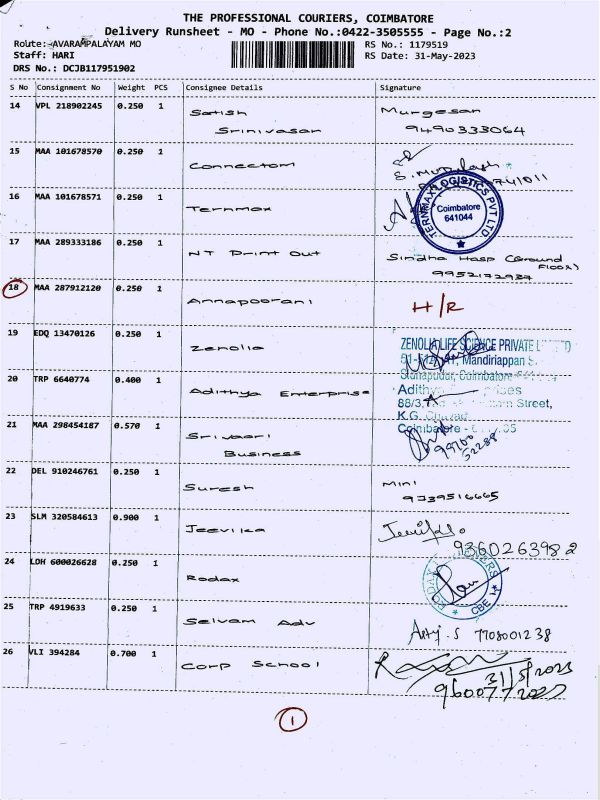 THE PROFESSIONAL COURIERS, COIMBATORE
Delivery Runsheet - MO - Phone No.:0422-3505555 - Page No.:2
Route: AVARAMPALAYAM MO
RS No.: 1179519
Staff: HARI
RS Date: 31-May-2023
DRS No.: DCJB117951902
S No Consignment No Weight PCS Consignee Details Signature
14 VPL 218902245 0.250 1 Satish Murgesan
Srinivasan 9490333064
15 MAA 101678570 0.250 1 Connectom
16 MAA 101678571 0.250 1 Ternmax
TERNMAX LOGISTICS PVT LTD
Coimbatore
641044
17 MAA 289333186 0.250 1 NT Print Out Sindha Hasp (Ground Floor)
9952172937
18 MAA 287912120 0.250 1 Annapoorani H/R
19 EDQ 13470126 0.250 1 Zenolia
ZENOLIA LIFE SCIENCE PRIVATE
Mandiriappan
Coimbatore
20 TRP 6640774 0.400 1 Adithya Enterprise
Street,
K.G.
Coimbatore
21 MAA 298454187 0.570 1 Srivaari
Business
99700
52288
22 DEL 910246761 0.250 1 Suresh Mini
9739516665
23 SLM 320584613 0.900 1 Jeevika
9360263982
24 LDH 600026628 0.250 1 Rodax
CBE
25 TRP 4919633 0.250 1 Selvam Adv
7708001238
26 VLI 394284 0.700 1 Corp School
31/5/2023
1